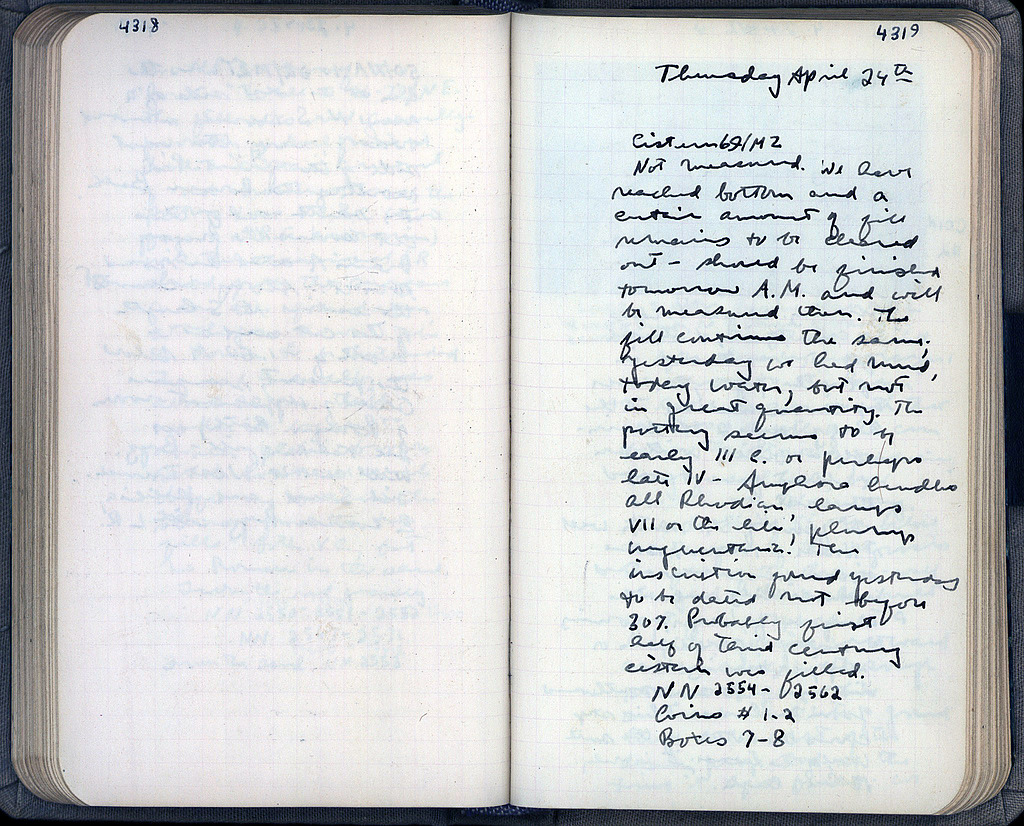 4318
4319
Thursday April 24th
Cistern 69/M2
Not measured. We have
reached bottom and a
certain amount of fill
remains to be cleared
out - should be finished
tomorrow A.M. and will
be measured then. The
fill continues the same;
yesterday we had mud,
today water, but not
in great quantity. The
pottery seems to be
early III c. or perhaps
late IV - Amphora handles
all Rhodian, lamps
VII or the like, plump
unguentaria. The
inscription found yesterday
to be dated not before
307. Probably first
half of third century
cistern was filled.
NN 2554-2562
Coins # 1-2
Boxes 7-8